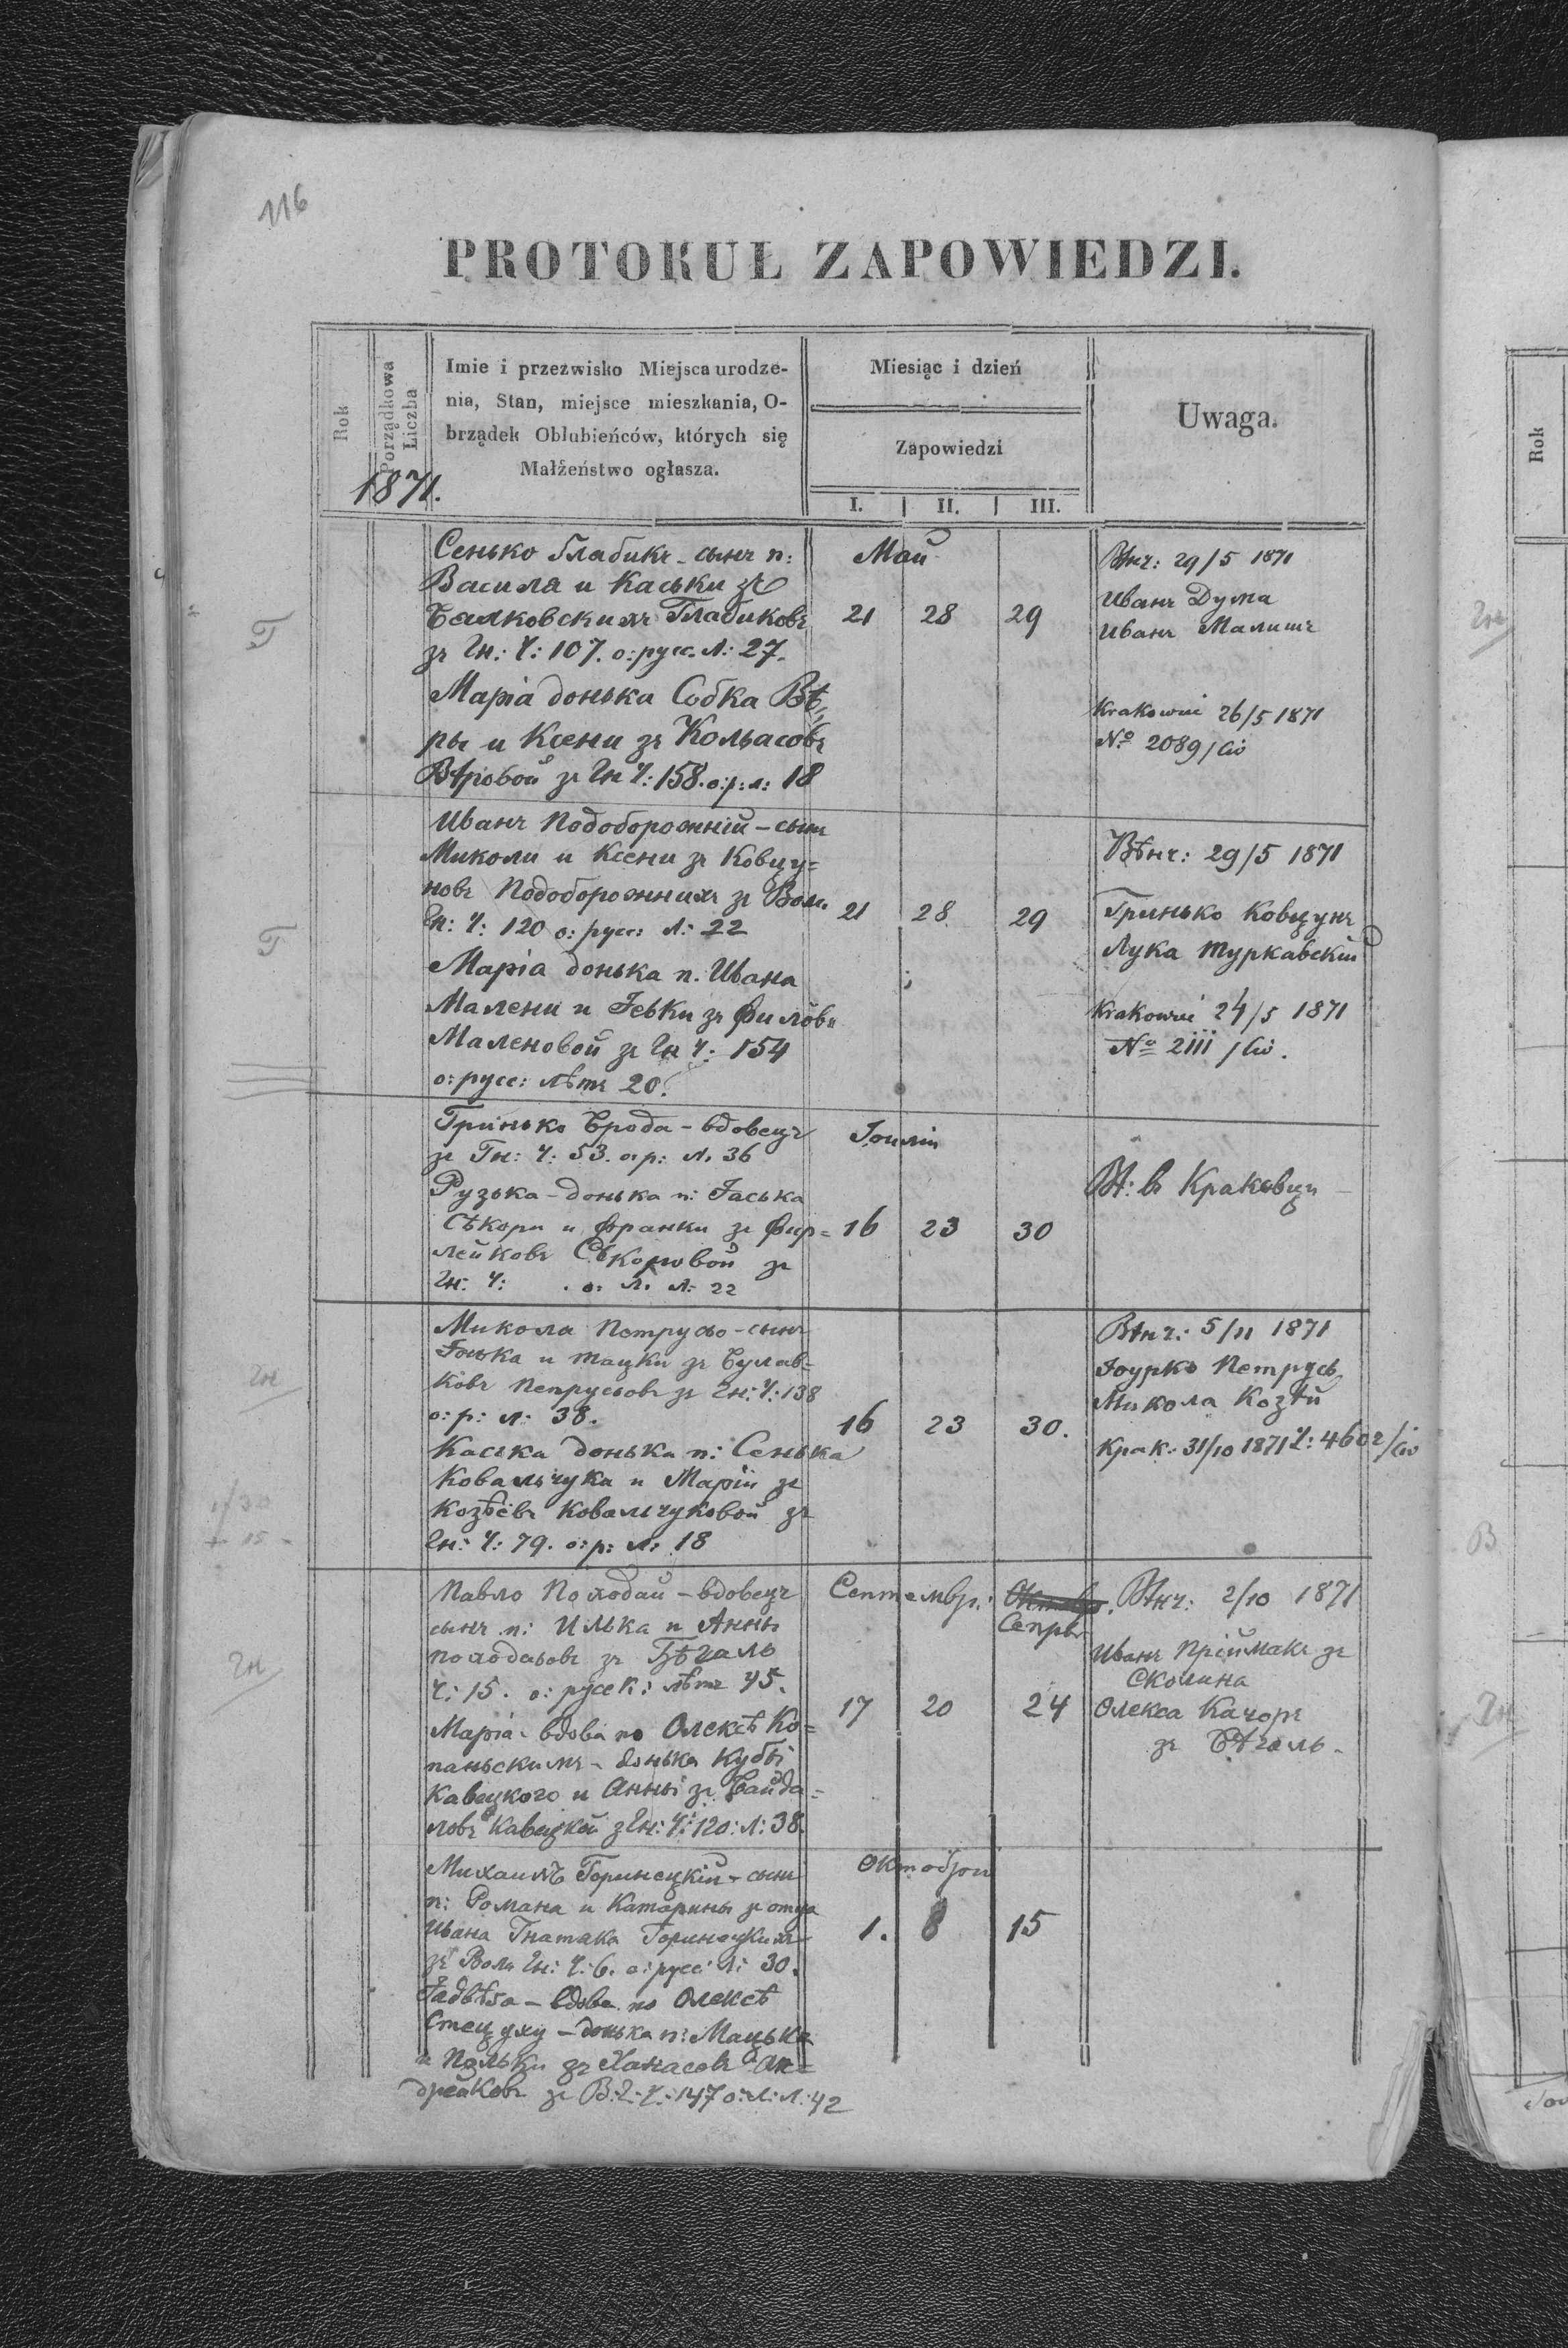 116
PROTOKUŁ ZAPOWIEDZI.
Rok
Porządkowa Liczba
Imie i przezwisko Miejsca urodze-
nia, Stan, miejsce mieszkania, O-
brządek Oblubieńców, których się
Małżeństwo ogłasza.
Miesiąc i dzień
Zapowiedzi
I. II. III.
Uwaga.
1871.
Г
Сенько Гладикъ - сынъ п:
Василя и Каськи зъ
Бялковскихъ Гладиковъ
зъ Гн: Ч: 107. о: русс. л: 27.
Марія донька Собка Вѣ„
ры и Ксени зъ Кольасовъ
Вѣровой зъ Гн Ч: 158. о: р: л: 18
Май
21 28 29
Вѣнч: 29/5 1871
Иванъ Дума
Иванъ Малишъ
Krakowiec 26/5 1871
No 2089/civ
Г
Иванъ Подоборожній - сынъ
Миколи и Ксени зъ Ковцу=
новъ Подоборожнихъ зъ Вол.
Гн: Ч: 120 о: русс: л: 22
Марія донька п. Ивана
Малени и Гевки зъ Филёвъ
Маленовой зъ Гн Ч: 154
о: русс: лѣтъ 20.
21 28 29
Вѣнч: 29/5 1871
Гринько Ковцунъ
Лука Туркавскій
Krakowiec 24/5 1871
No 2111/civ.
Гринько Брода - вдовецъ
зъ Гн: Ч: 53. о: р: л. 36
Рузька - донька п: Гаська
Сѣкори и Франки зъ Фир=
лейковъ Сѣкоровой зъ
Гн: Ч: . о: л. л: 22
Іоулій
16 23 30
Вѣ: въ Краковци
Гн
Микола Петрусьо - сынъ
Гонька и Тацки зъ Булав=
ковъ Петрусьовъ зъ Гн: Ч: 138
о: р: л: 38.
Каська донька п: Сенька
Ковальчука и Маріи зъ
Козѣёвъ Ковальчуковой зъ
Гн: Ч: 79. о: р: л: 18
16 23 30.
Вѣнч: 5/11 1871
Гоурко Петрусь
Микола Козѣй
Крак. 31/10 1871 Ч: 4602/civ
Гн
Павло Походай - вдовецъ
сынъ п: Илька и Анны
Походаьовъ зъ Бѣгаль
Ч: 15. о: русск: лѣтъ 45.
Марія - вдова по Олексѣ Ко=
паньскимъ - донька Кубы
Кавецкого и Анны зъ Байда=
ловъ Кавецкой з Гн: Ч: 120: л: 38.
Септемвр:
17 20 24
Вѣнч: 2/10 1871
Иванъ Пріймакъ зъ
Сколина
Олекса Качоръ
зъ Бѣгаль.
Михаилъ Горинецкій - сынъ
п: Романа и Катарины зъ отца
Ивана Гнатака Горинецкихъ
зъ Воли Гн: Ч: 6. о: русс: л: 30.
Ядвѣга - вдова по Олексѣ
Стецуху - донька п: Мацька
и Пальки зъ Ханасовъ Ан=
дрейковъ зъ В: Г: Ч: 147 о: л: л: 42
Октобрій
1. 8 15
Rok
Гн
В
Гн